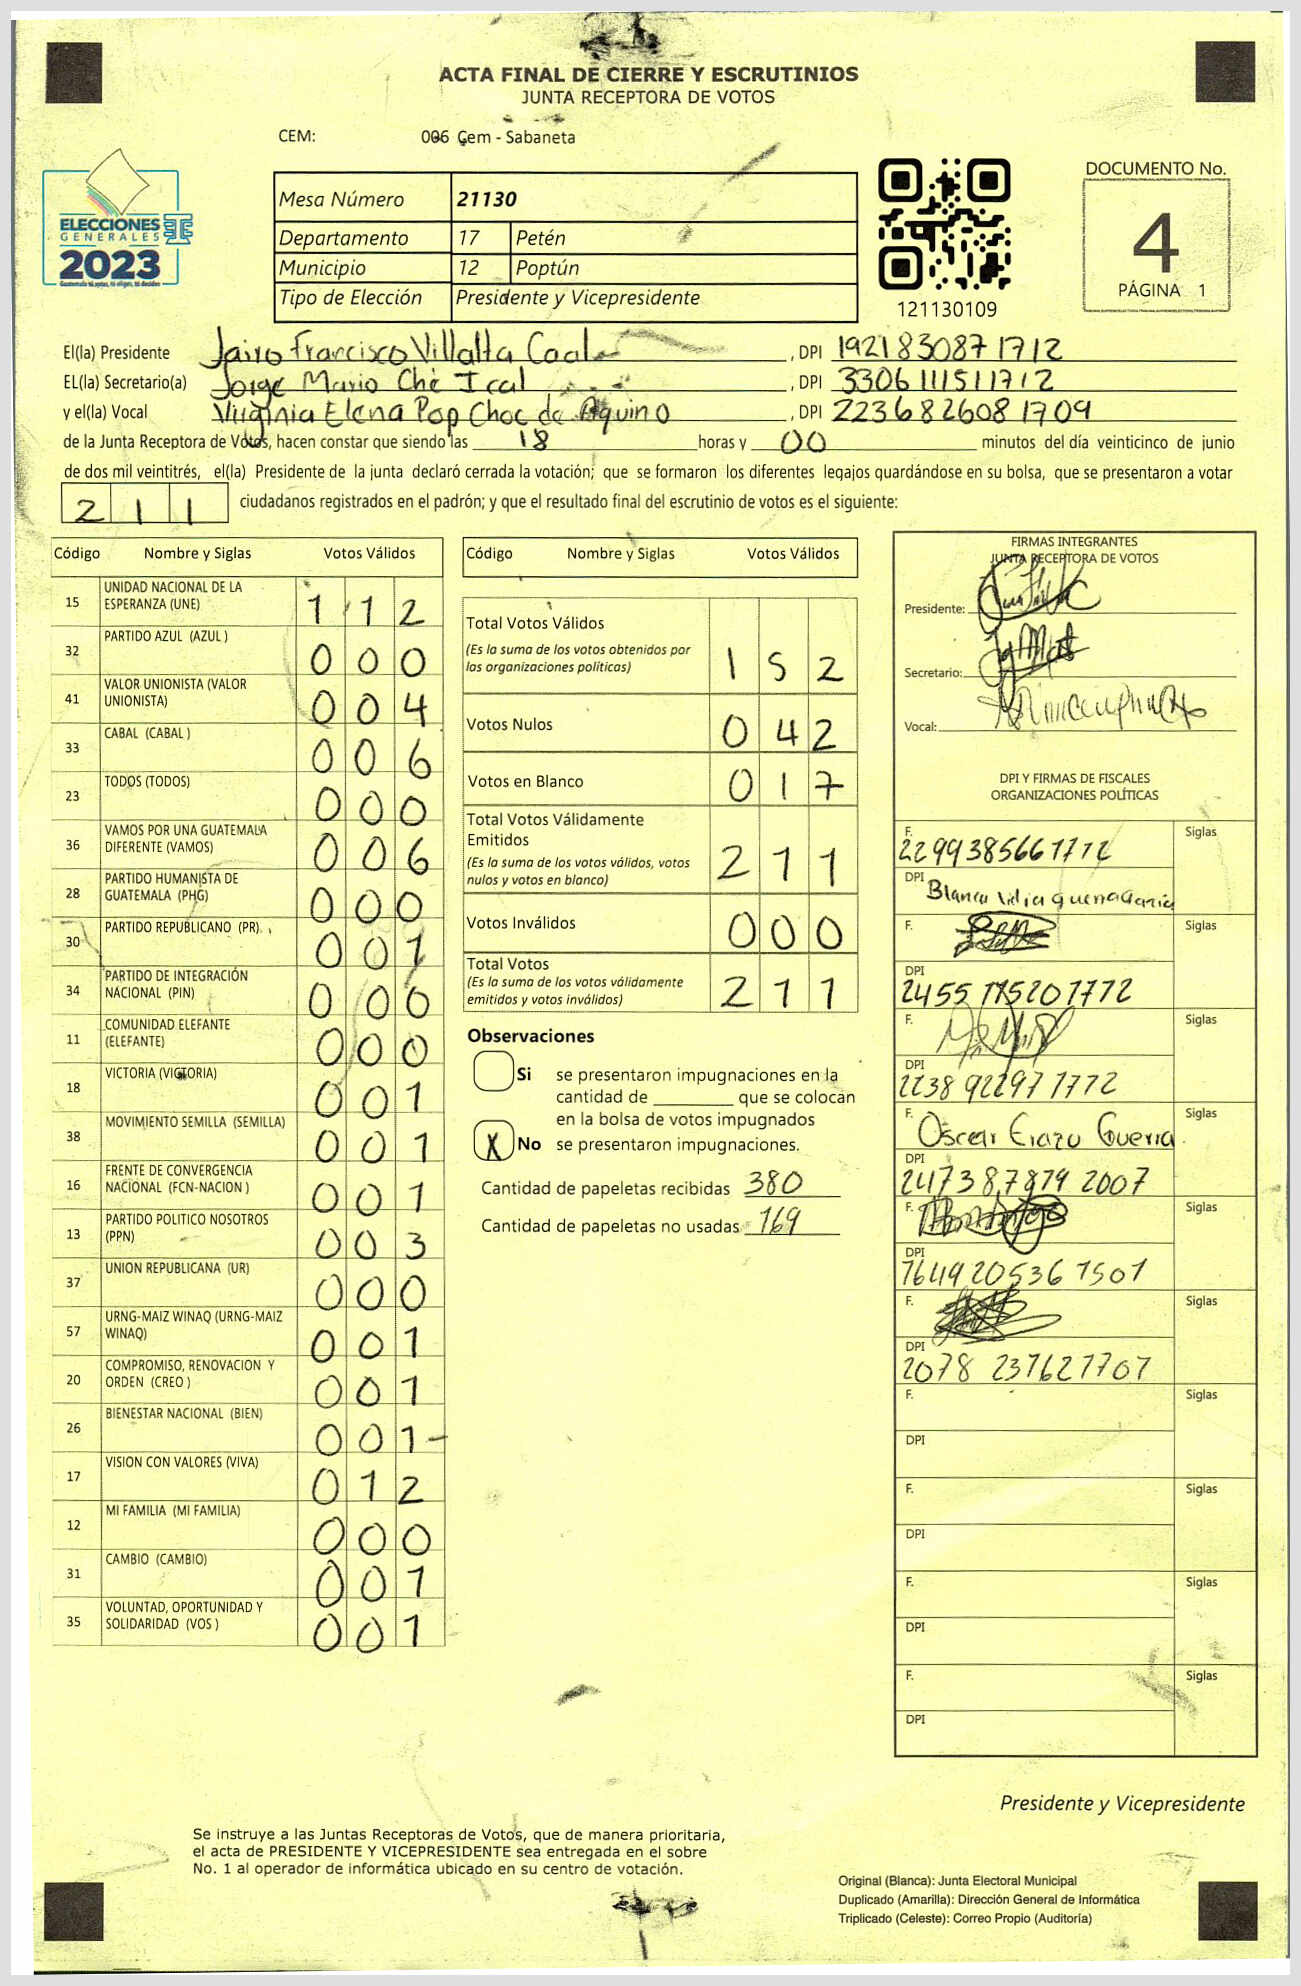 ACTA FINAL DE CIERRE Y ESCRUTINIOS
JUNTA RECEPTORA DE VOTOS
CEM: 006 Cem - Sabaneta
Mesa Número 21130
Departamento 17 Petén
Municipio 12 Poptún
Tipo de Elección Presidente y Vicepresidente
ELECCIONES
GENERALES
2023
121130109
DOCUMENTO No.
4
PÁGINA 1
El(la) Presidente Jairo Francisco Villalta Caal, DPI 1921830871712
EL(la) Secretario(a) Jorge Mario Ché Ical, DPI 3306111511712
y el(la) Vocal Virginia Elena Pop Choc de Aquino, DPI 2236826081709
de la Junta Receptora de Votos, hacen constar que siendo las 18 horas y 00 minutos del día veinticinco de junio
de dos mil veintitrés, el(la) Presidente de la junta declaró cerrada la votación; que se formaron los diferentes legajos quardándose en su bolsa, que se presentaron a votar
211 ciudadanos registrados en el padrón; y que el resultado final del escrutinio de votos es el siguiente:
Código Nombre y Siglas Votos Válidos
15 UNIDAD NACIONAL DE LA
ESPERANZA (UNE) 112
32 PARTIDO AZUL (AZUL ) 000
41 VALOR UNIONISTA (VALOR
UNIONISTA) 004
33 CABAL (CABAL ) 006
23 TODOS (TODOS) 000
36 VAMOS POR UNA GUATEMALA
DIFERENTE (VAMOS) 006
28 PARTIDO HUMANISTA DE
GUATEMALA (PHG) 000
30 PARTIDO REPUBLICANO (PR) 001
34 PARTIDO DE INTEGRACIÓN
NACIONAL (PIN) 000
11 COMUNIDAD ELEFANTE
(ELEFANTE) 000
18 VICTORIA (VICTORIA) 001
38 MOVIMIENTO SEMILLA (SEMILLA) 001
16 FRENTE DE CONVERGENCIA
NACIONAL (FCN-NACION ) 001
13 PARTIDO POLITICO NOSOTROS
(PPN) 003
37 UNION REPUBLICANA (UR) 000
57 URNG-MAIZ WINAQ (URNG-MAIZ
WINAQ) 001
20 COMPROMISO, RENOVACION Y
ORDEN (CREO ) 001
26 BIENESTAR NACIONAL (BIEN) 001
17 VISION CON VALORES (VIVA) 012
12 MI FAMILIA (MI FAMILIA) 000
31 CAMBIO (CAMBIO) 001
35 VOLUNTAD, OPORTUNIDAD Y
SOLIDARIDAD (VOS ) 001
Código Nombre y Siglas Votos Válidos
Total Votos Válidos
(Es la suma de los votos obtenidos por
las organizaciones políticas) 152
Votos Nulos 042
Votos en Blanco 017
Total Votos Válidamente
Emitidos
(Es la suma de los votos válidos, votos
nulos y votos en blanco) 211
Votos Inválidos 000
Total Votos
(Es la suma de los votos válidamente
emitidos y votos inválidos) 211
Observaciones
Si se presentaron impugnaciones en la
cantidad de ________ que se colocan
en la bolsa de votos impugnados
X No se presentaron impugnaciones.
Cantidad de papeletas recibidas 380
Cantidad de papeletas no usadas 169
FIRMAS INTEGRANTES
JUNTA RECEPTORA DE VOTOS
Presidente:
Secretario:
Vocal:
DPI Y FIRMAS DE FISCALES
ORGANIZACIONES POLÍTICAS
F. 2299385661712 Siglas
DPI Blanca
F. Siglas
DPI 2455 175201712
F. Siglas
DPI 2238 922971712
F. Oscar Erazo Guerra Siglas
DPI 2473878792007
F. Siglas
DPI 1649205361501
F. Siglas
DPI 2078 237621707
F. Siglas
DPI
F. Siglas
DPI
F. Siglas
DPI
F. Siglas
DPI
Presidente y Vicepresidente
Se instruye a las Juntas Receptoras de Votos, que de manera prioritaria,
el acta de PRESIDENTE Y VICEPRESIDENTE sea entregada en el sobre
No. 1 al operador de informática ubicado en su centro de votación.
Original (Blanca): Junta Electoral Municipal
Duplicado (Amarilla): Dirección General de Informática
Triplicado (Celeste): Correo Propio (Auditoría)